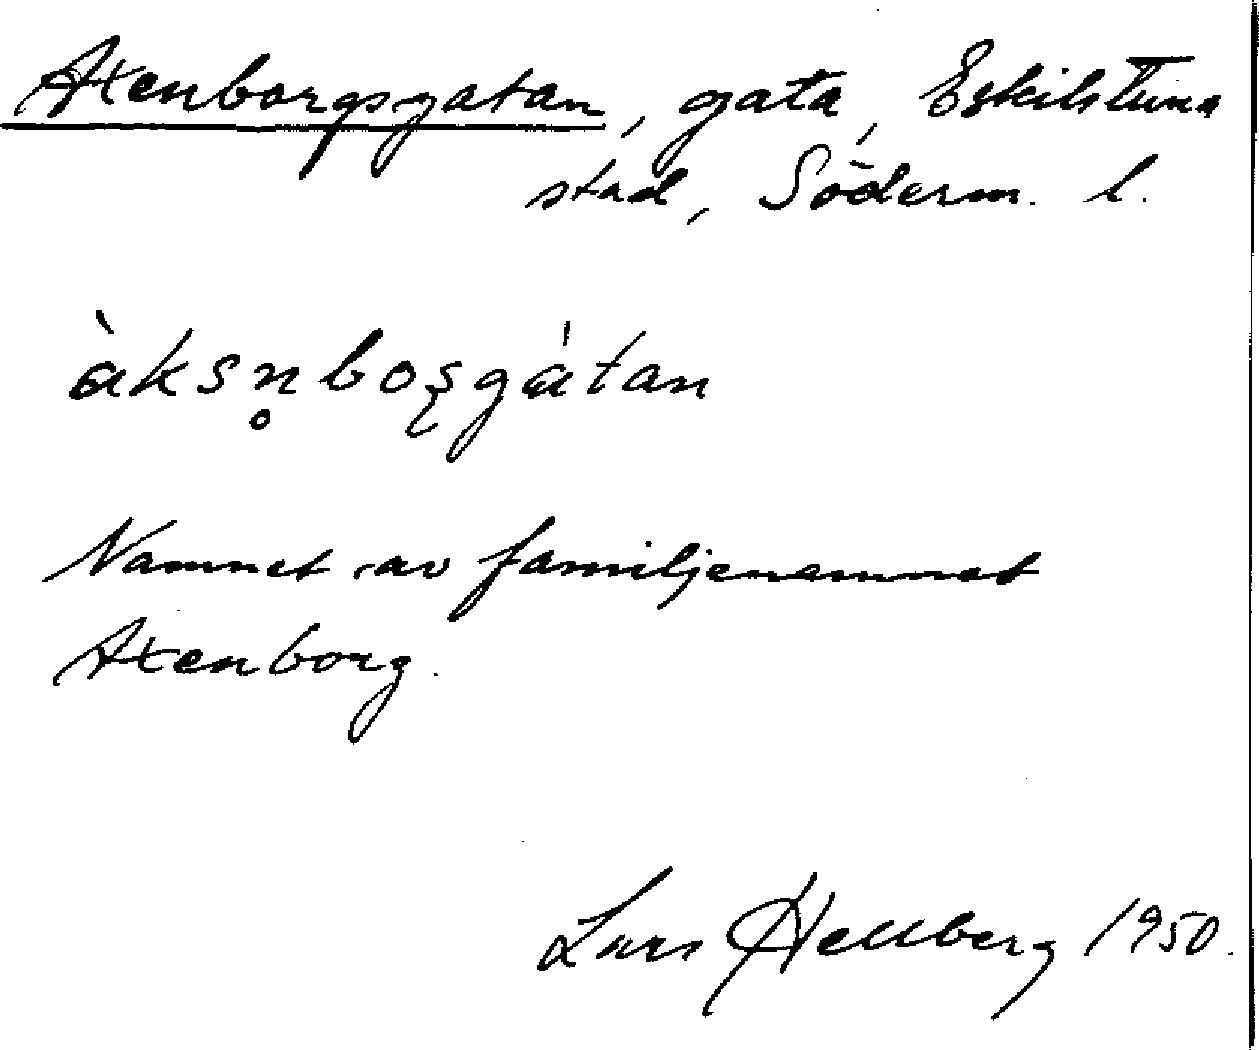 Axenborgsgatan, gata, Eskilstuna
stad, Söderm. l.
àksn̥boşgátan
Namnet av familjenamnet
Axenborg.
Lars Hellberg 1950.